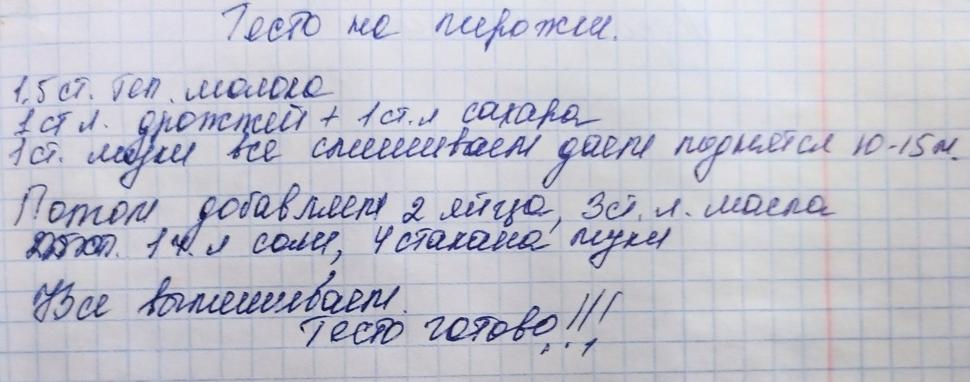 Тесто на пирожки.
1,5 ст. теп. молока
1 ст л. дрожжей + 1 ст. л сахара
1 ст. муки все смешиваем даем поднятся 10-15 м.
Потом добавляем 2 яйца, 3 ст. л. масла
1 ч. л соли, 4 стакана муки
Все вымешиваем.
Тесто готово!!!